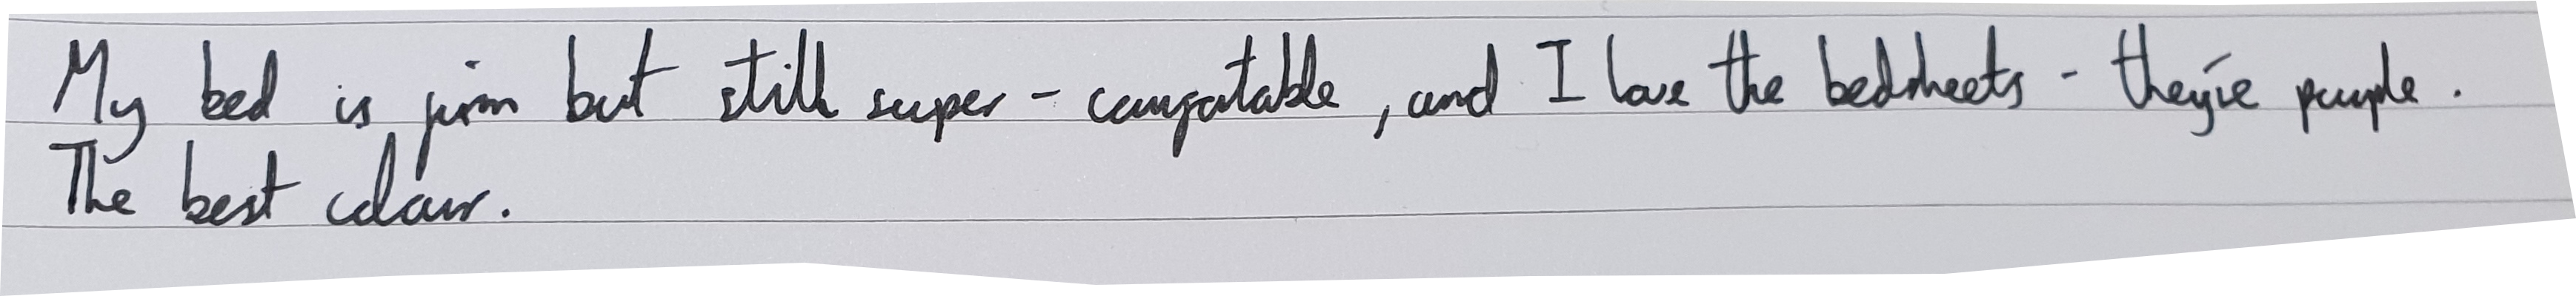 My bed is firm but still super-comfortable, and I love the bedsheets - they're purple.
The best colour.